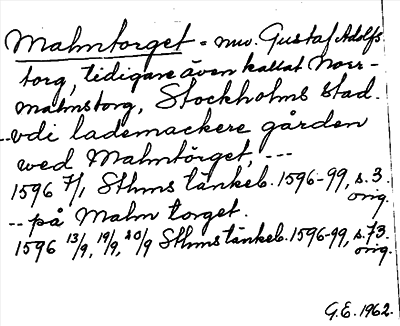 Malmtorget = nuv. Gustaf Adolfs
torg, tidigare även kallat Norr-
malmstorg, Stockholms stad.
--vdi lademackere gården
wed Malmtörget, ---
1596 7/1, Sthms tänkeb. 1596-99, s. 3.
orig.
-- på Malm torget.
1596 13/9, 19/9, 20/9 Sthms tänkeb. 1596-99, s. 73.
orig.
G.E. 1962.